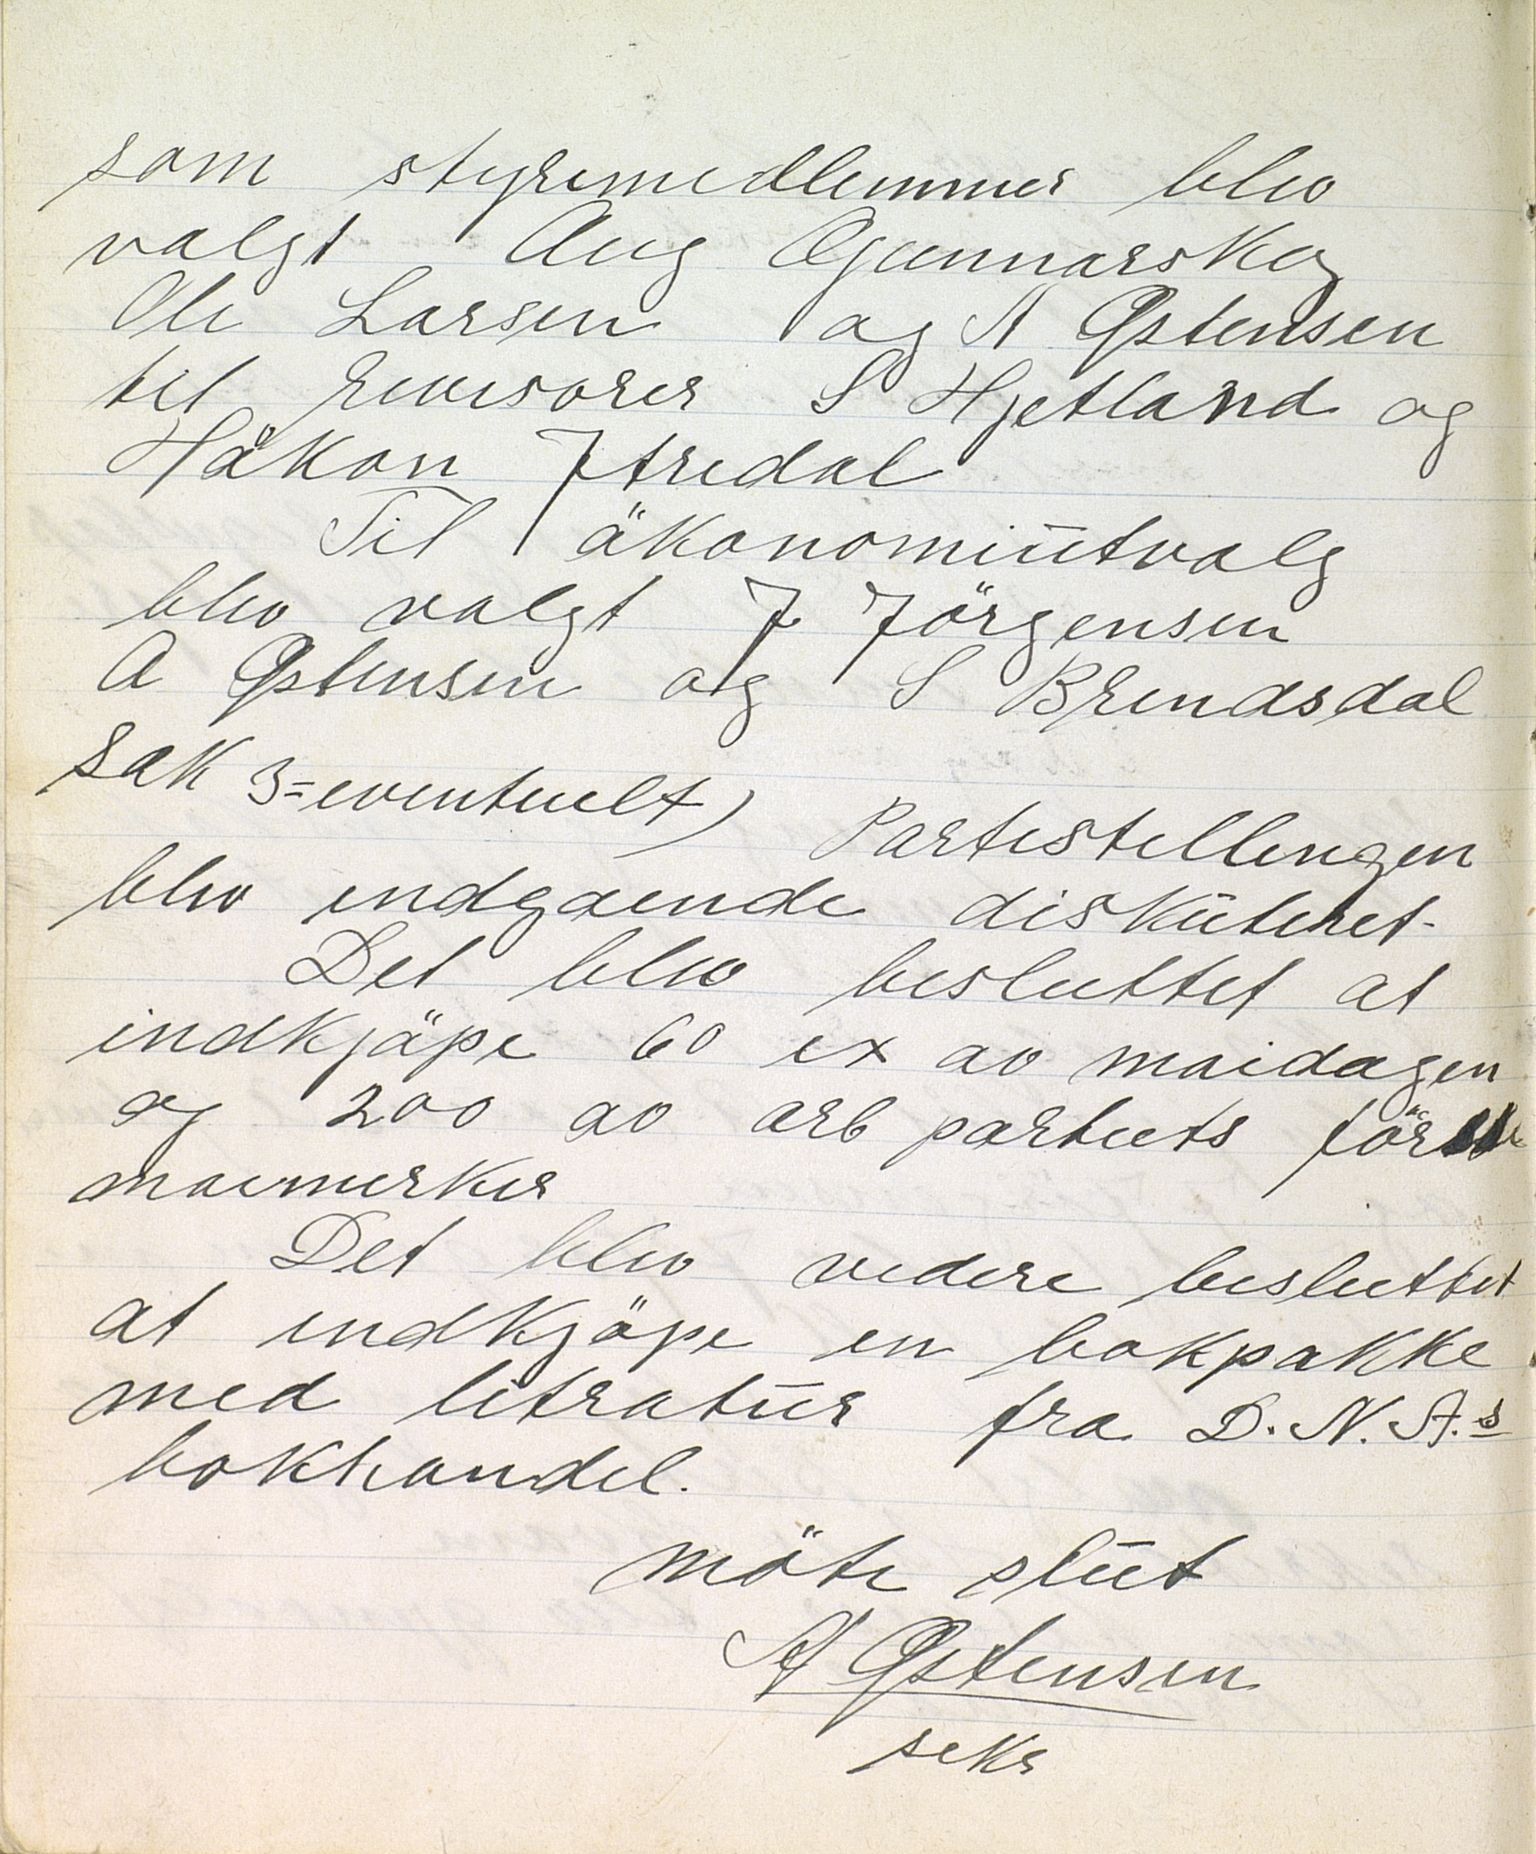 som styremedlemmer blev
valgt Aug Gjennarskog
Ole Larsen og A Østensen
til revisorer S Hjetland og
Håkon Itredal
Til ökonomiutvalg
blev valgt J Jörgensen
A Østensen og S Brendsdal
sak 3=eventuelt) Partistellingen
blev indgaende diskuteret-
Det blev besluttet at
indkjöpe 60 ex av maidagen
og 200 av arb partiets förste
maimerker
Det blev videre besluttet
at indkjöpe en bokpakke
med litratur fra D.N.A.s
bokhandel.
möte slut
A Østensen
sekr